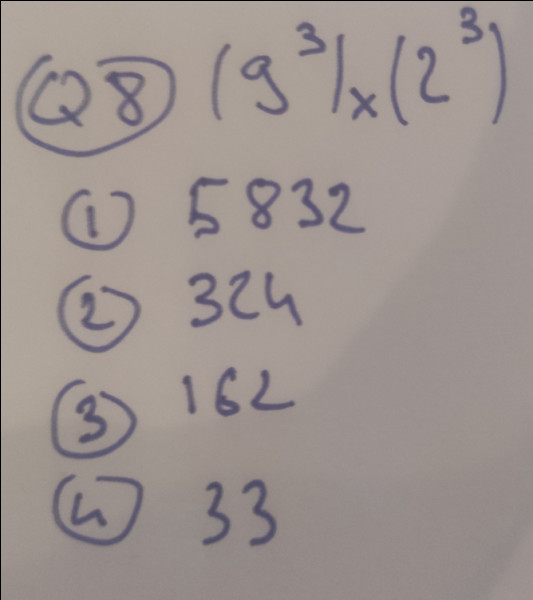 Q8 (9³)×(2³)
1 5832
2 324
3 162
4 33